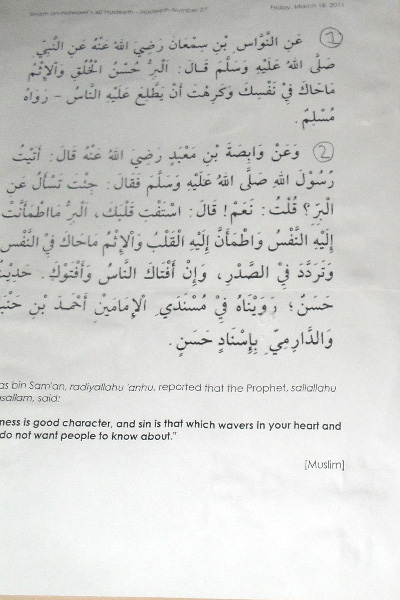 Imam An-Nawawi's 40 Hadeeth - Hadeeth Number 27 Friday, March 18, 2011
① عَنِ النَّوَّاسِ بْنِ سِمْعَانَ رَضِيَ اللهُ عَنْهُ عَنِ النَّبِيِّ
صَلَّى اللهُ عَلَيْهِ وَسَلَّمَ قَالَ: اَلْبِرُّ حُسْنُ الْخُلُقِ وَالْإِثْمُ
مَاحَاكَ فِيْ نَفْسِكَ وَكَرِهْتَ أَنْ يَطَّلِعَ عَلَيْهِ النَّاسُ – رَوَاهُ
مُسْلِمٌ.
② وَعَنْ وَابِصَةَ بْنِ مَعْبَدٍ رَضِيَ اللهُ عَنْهُ قَالَ: أَتَيْتُ
رَسُوْلَ اللهِ صَلَّى اللهُ عَلَيْهِ وَسَلَّمَ فَقَالَ: جِئْتَ تَسْأَلُ عَنِ
الْبِرِّ؟ قُلْتُ: نَعَمْ! قَالَ: اسْتَفْتِ قَلْبَكَ، اَلْبِرُّ مَااطْمَأَنَّتْ
إِلَيْهِ النَّفْسُ وَاطْمَأَنَّ إِلَيْهِ الْقَلْبُ وَالْإِثْمُ مَاحَاكَ فِي النَّفْسِ
وَتَرَدَّدَ فِي الصَّدْرِ، وَإِنْ أَفْتَاكَ النَّاسُ وَأَفْتَوْكَ. حَدِيْثٌ
حَسَنٌ؛ رَوَيْنَاهُ فِيْ مُسْنَدَيِ الْإِمَامَيْنِ أَحْمَدَ بْنِ
وَالدَّارِمِيِّ بِإِسْنَادٍ حَسَنٍ.
as bin Sam'an, radiyallahu 'anhu, reported that the Prophet, sallallahu
asallam, said:
ness is good character, and sin is that which wavers in your heart and
do not want people to know about."
[Muslim]